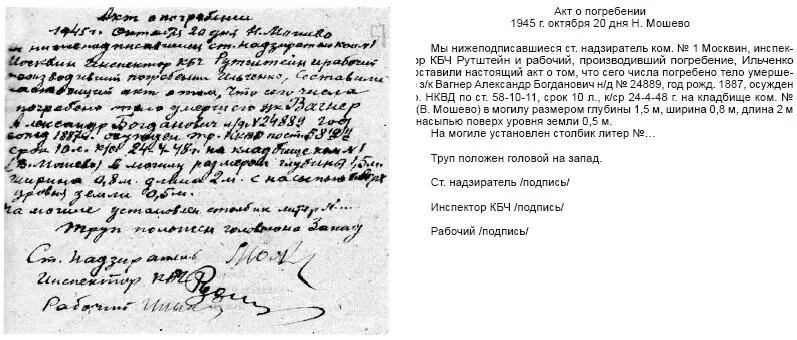 Акт о погребении
1945 г. Октября 20 дня Н. Мошево
ниженодписавшиеся ст. надзиратель ком №1
Москвин Инспектор КБЧ Рутштейн и рабочий
производивший погребение Ильченко, Составили
настоящий акт о том, что сего числа
погребено тело умершего з/к Вагнер
Александр Богданович н/д №24889 год
рожд 1887 г. осужден Тр. НКВД по ст 58-10-11
срок 10 л. к/ср 24-4-48 г. на кладбище ком №1
(В. Мошево) в могилу размером глубины 1,5 м.
ширина 0,8 м. длина 2 м. с насыпью поверх
уровня земли 0,5 м.
На могиле установлен столбик литер №...
Труп положен головой на Запад
Ст. надзиратель
Инспектор КБЧ
Рабочий
Акт о погребении
1945 г. октября 20 дня Н. Мошево
Мы нижеподписавшиеся ст. надзиратель ком. № 1 Москвин, инспек-
ор КБЧ Рутштейн и рабочий, производивший погребение, Ильченко
оставили настоящий акт о том, что сего числа погребено тело умерше-
о з/к Вагнер Александр Богданович н/д № 24889, год рожд. 1887, осужден
. НКВД по ст. 58-10-11, срок 10 л., к/ср 24-4-48 г. на кладбище ком. №
(В. Мошево) в могилу размером глубины 1,5 м, ширина 0,8 м, длина 2 м
насыпью поверх уровня земли 0,5 м.
На могиле установлен столбик литер №…
Труп положен головой на запад.
Ст. надзиратель /подпись/
Инспектор КБЧ /подпись/
Рабочий /подпись/